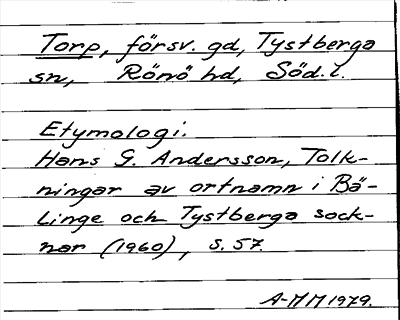 Torp, försv. gd, Tystberga
sn, Rönö hd, Söd. l.
Etymologi:
Hans G. Andersson, Tolk-
ningar av ortnamn i Bä-
linge och Tystberga sock-
nar (1960), s. 57.
A-MM 1979.